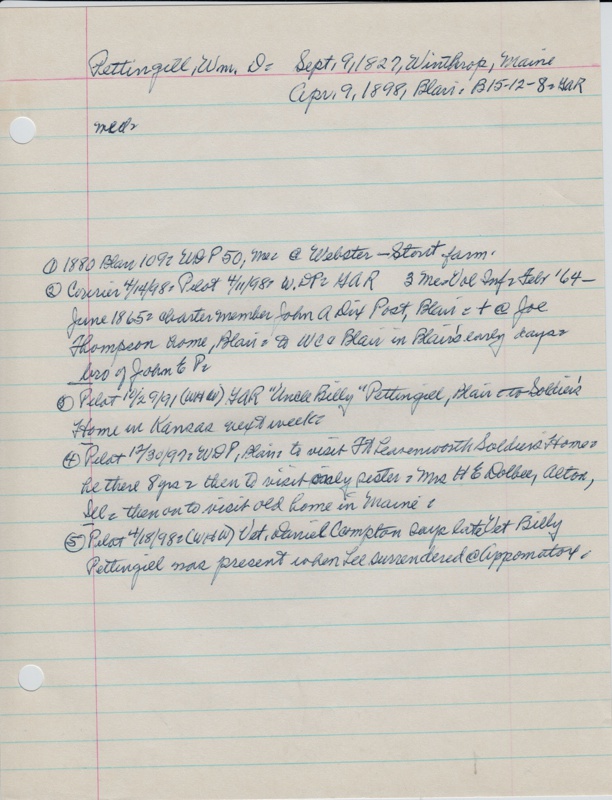 Pettingill, Wm. D= Sept. 9, 1827, Winthrop, Maine
Apr. 9, 1898, Blair. B15-12-8= GAR
med=
① 1880 Blair 109= WDP 50, Me= @ Webster - Stout farm.
② Courier 4/14/98= Pilot 4/11/98= W.DP= GAR 3 Me=Vol Inf= Feb '64-
June 1865= charter member John A Dix Post, Blair = + @ Joe
Thompson home, Blair = to WC= Blair in Blair's early days=
bro of John E P=
③ Pilot 12/29/91 (WHW) GAR "Uncle Billy" Pettingill, Blair = to Soldier's
Home in Kansas next week=
④ Pilot 12/30/97= WDP, Blair= to visit Ft Leavenworth Soldiers Home=
he there 8 yrs = then to visit only sister = Mrs H E Dolbee, Alton,
Ill = then on to visit old home in Maine =
⑤ Pilot 4/18/98= (WHW) Vet. Daniel Compton says late Vet Billy
Pettingill was present when Lee surrendered @ Appomatox.